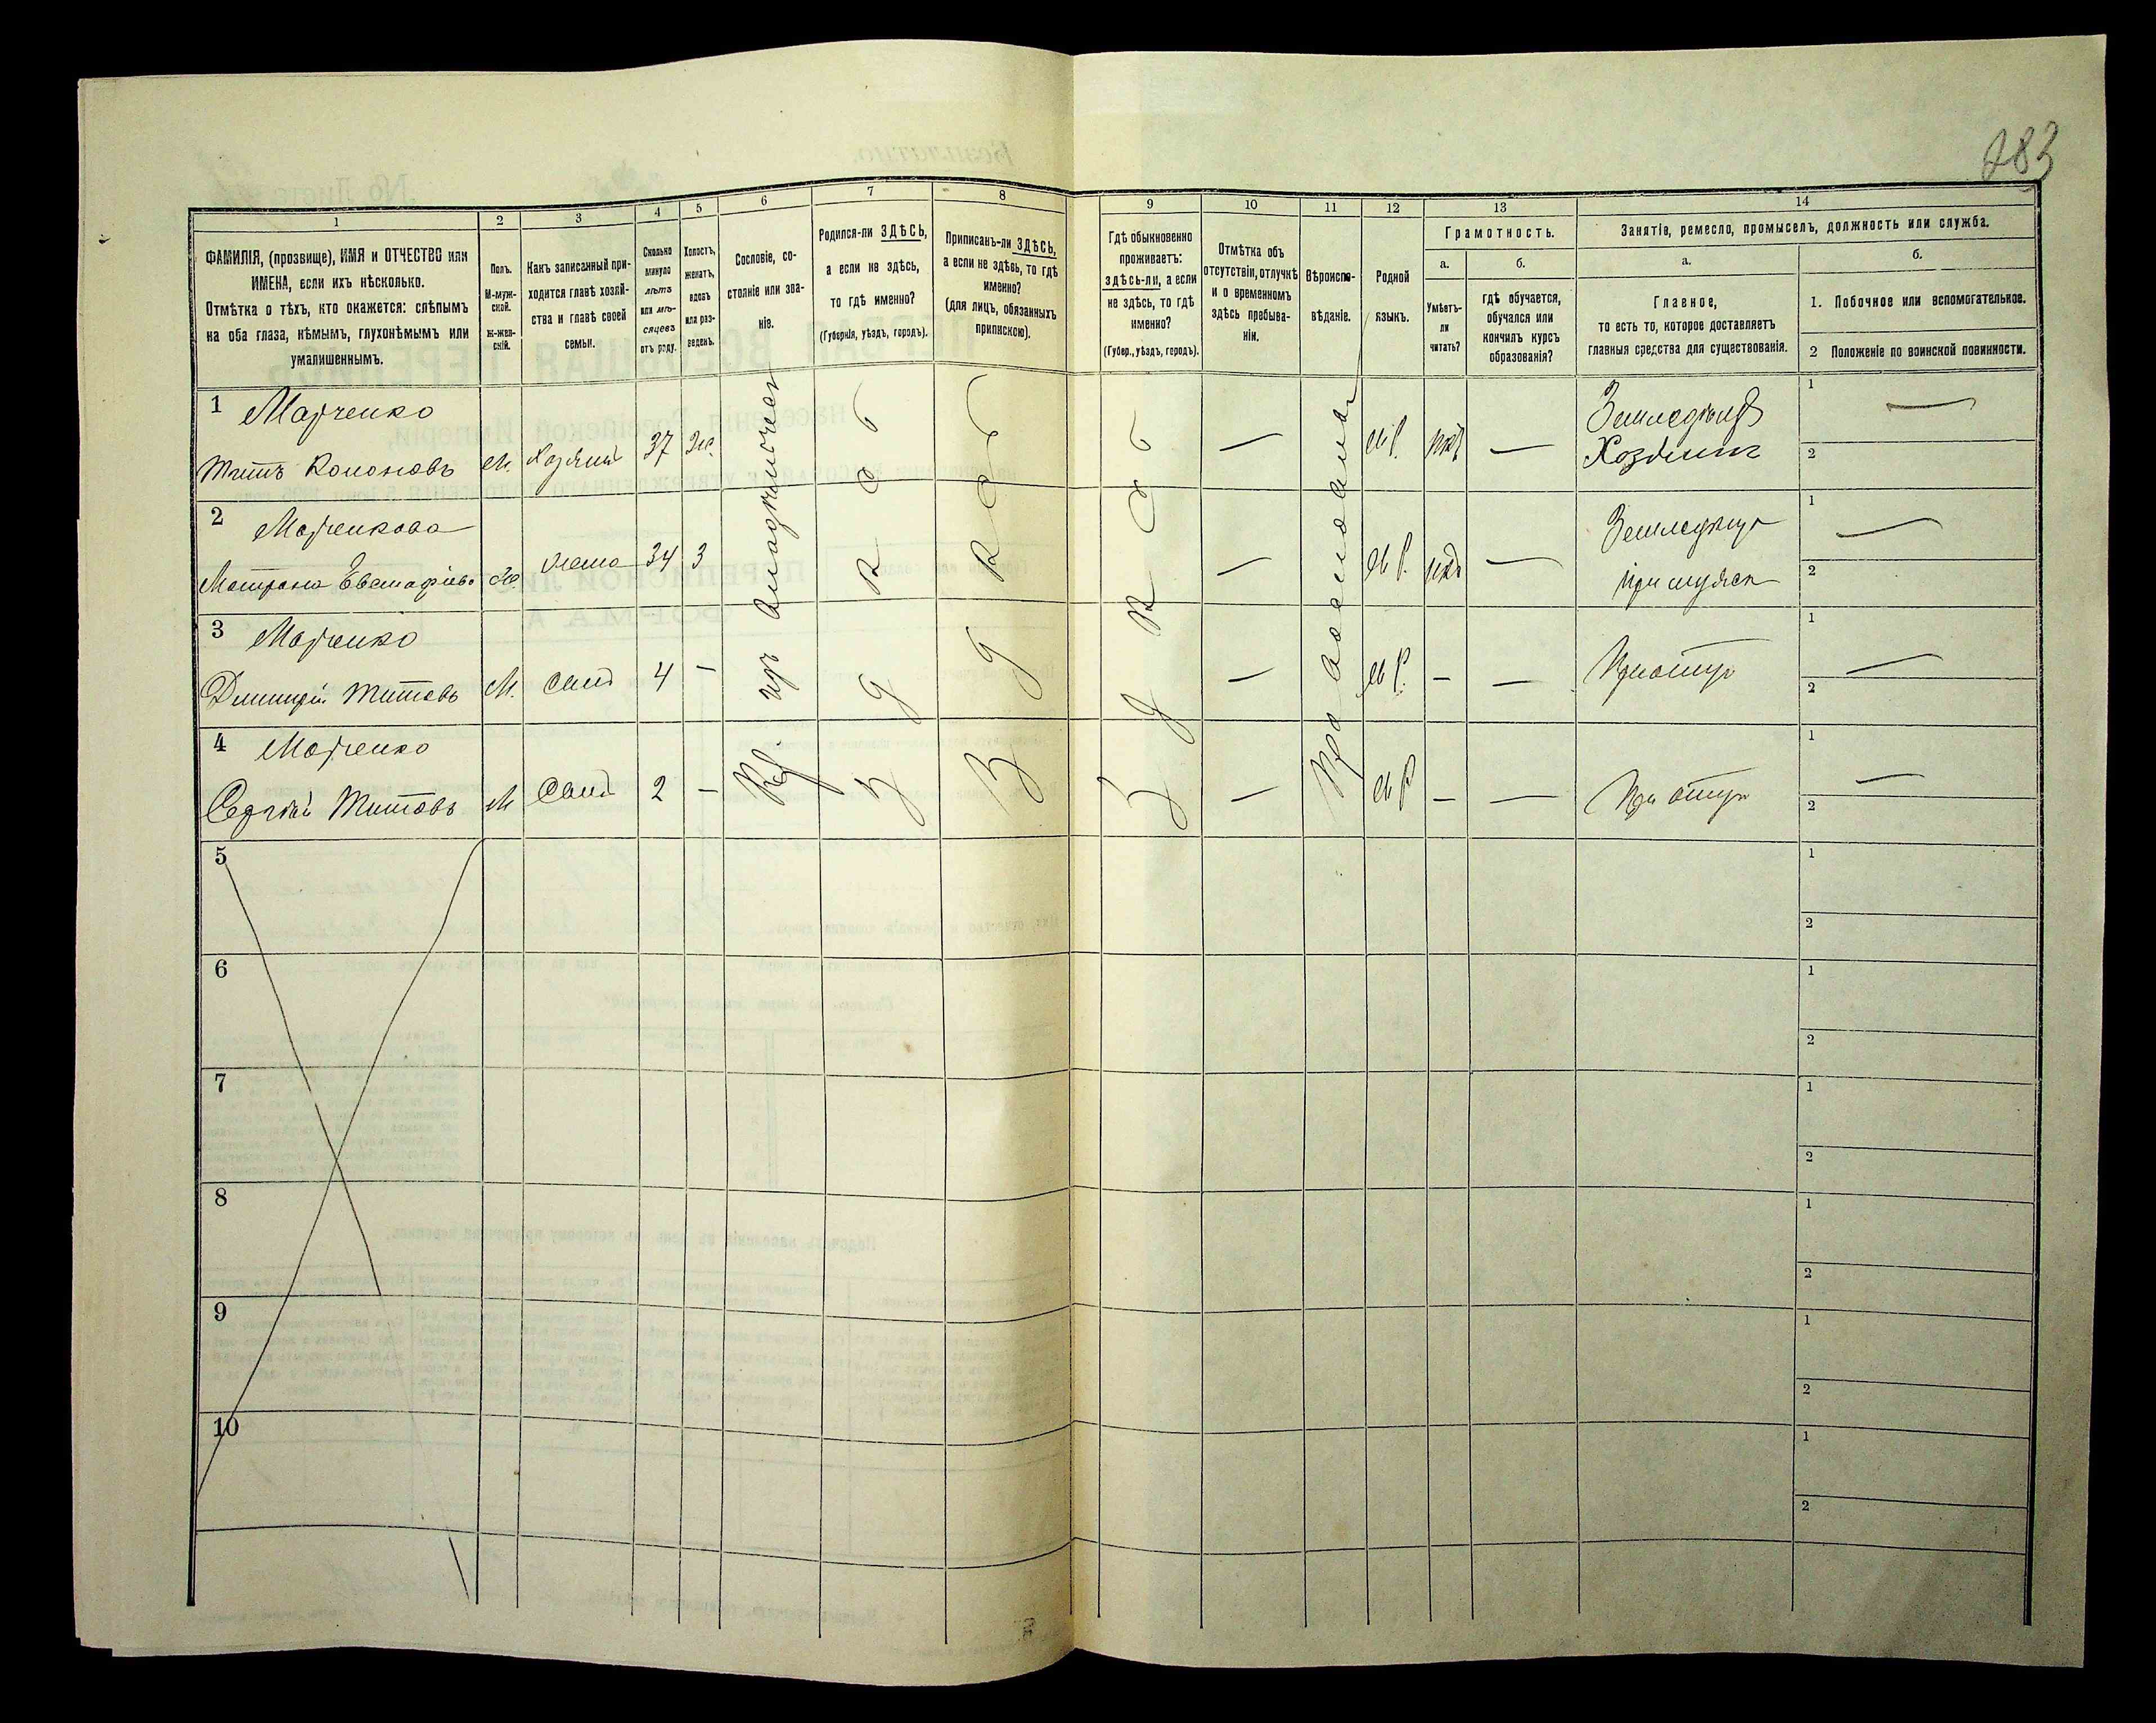 283
1
2
3
4
5
6
7
8
9
10
11
12
13
14
ФАМИЛІЯ, (прозвище), ИМЯ и ОТЧЕСТВО или
ИМЕНА, если ихъ нѣсколько.
Отмѣтка о тѣхъ, кто окажется: слѣпымъ
на оба глаза, нѣмымъ, глухонѣмымъ или
умалишеннымъ.
Полъ.
М-муж-
ской.
Ж-жен-
скій.
Какъ записанный при-
ходится главѣ хозяй-
ства и главѣ своей
семьи.
Сколько
минуло
лѣтъ
или мѣ-
сяцевъ
отъ роду.
Холостъ,
женатъ,
вдовъ
или раз-
веденъ.
Сословіе, со-
стояніе или зва-
ніе.
Родился-ли ЗДѢСЬ,
а если не здѣсь,
то гдѣ именно?
(Губернія, уѣздъ, городъ).
Приписанъ-ли ЗДѢСЬ,
а если не здѣсь, то гдѣ
именно?
(для лицъ, обязанныхъ
припискою).
Гдѣ обыкновенно
проживаетъ:
здѣсь-ли, а если
не здѣсь, то гдѣ
именно?
(Губер., уѣздъ, городъ).
Отмѣтка объ
отсутствіи, отлучкѣ
и о временномъ
здѣсь пребыва-
ніи.
Вѣроиспо-
вѣданіе.
Родной
языкъ.
Грамотность.
а.
Умѣетъ-
ли
читать?
б.
гдѣ обучается,
обучался или
кончилъ курсъ
образованія?
Занятіе, ремесло, промыселъ, должность или служба.
а.
Главное,
то есть то, которое доставляетъ
главныя средства для существованія.
б.
1. Побочное или вспомогательное.
2 Положеніе по воинской повинности.
1 Марченко
Титъ Кононовъ М. Хозяинъ 37 Ж. — М.Р. нѣтъ — Земледѣлецъ
Хозяинъ
1 —
2
2 Марченкова
Матрона Ж. жена 34 З — М.Р. нѣтъ —
при мужѣ
1 —
2
3 Марченко
Димитрій Титовъ М. сынъ 4 — — М.Р. — — При отцѣ
1 —
2
4 Марченко
Сергѣй Титовъ М сынъ 2 — — М.Р — — При отцѣ
1 —
2
Здѣсь
Здѣсь
Здѣсь
Православное
5
1
2
6
1
2
7
1
2
8
1
2
9
1
2
10
1
2